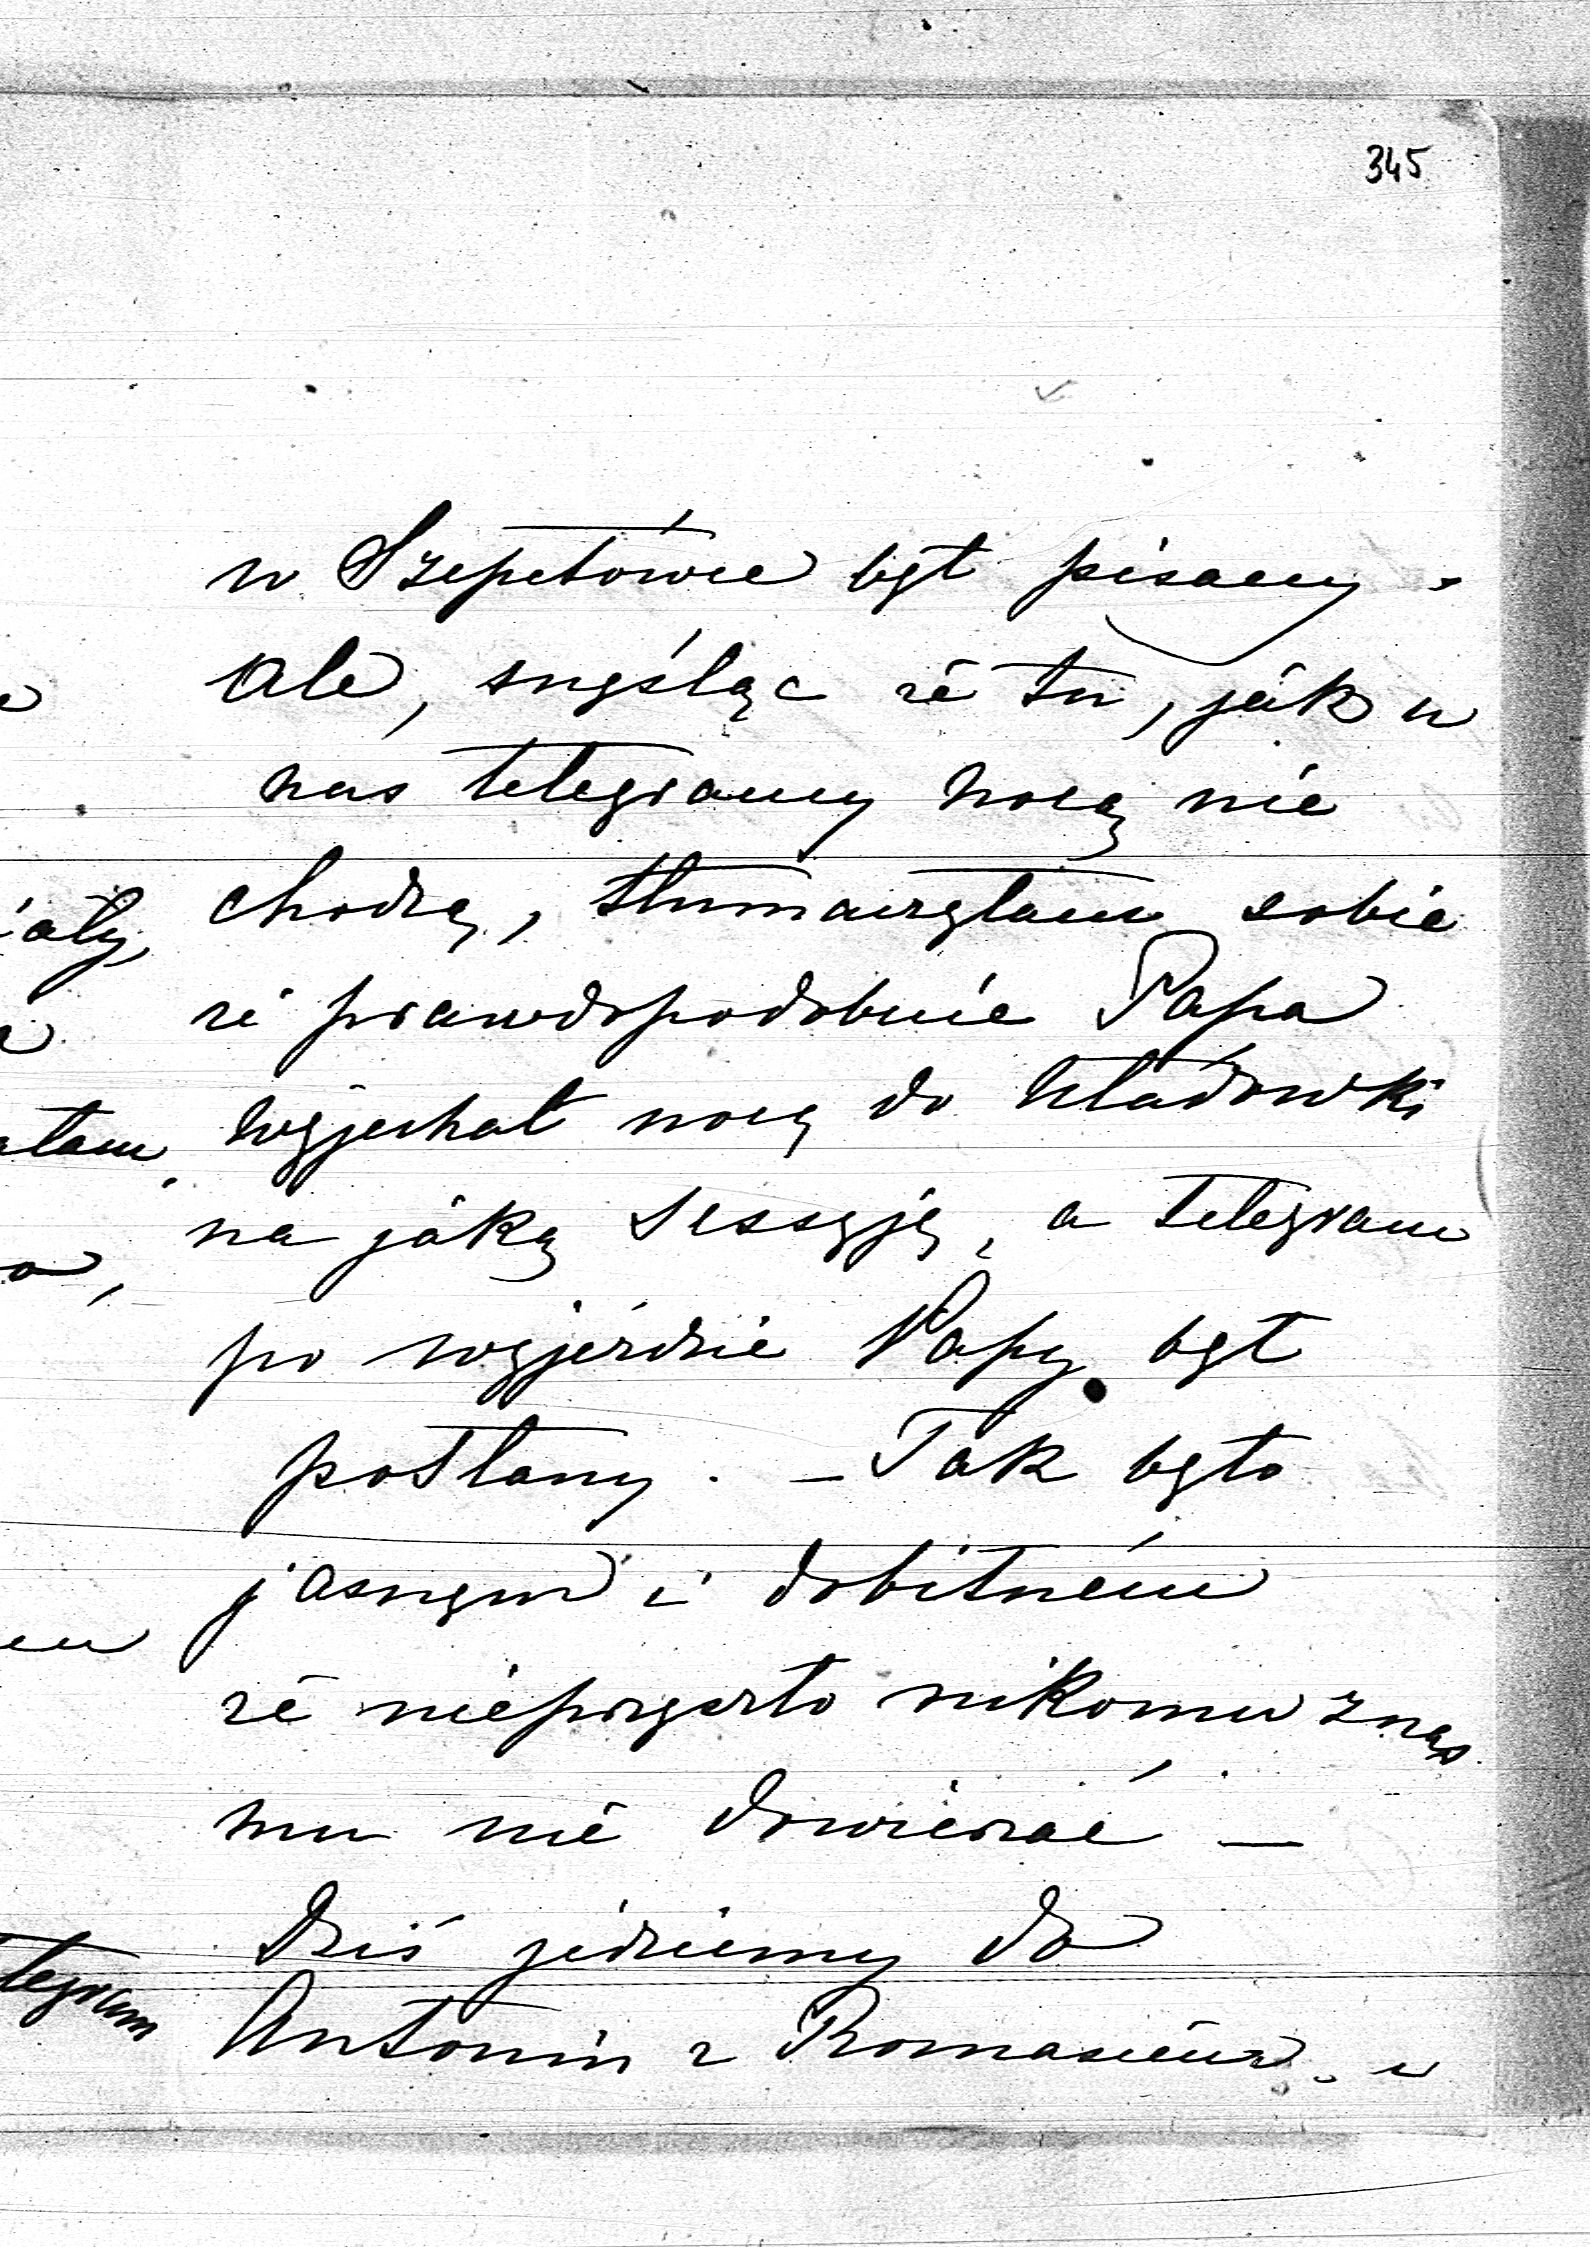 345
w Szepetówce był pisany.
Ale, myśląc że tu, jak u
nas telegramy nocą nie
chodzą, tłumaczyłam sobie
że prawdopodobnie Papa
wyjechał nocą do Kładówki
na jaką sessyję, a telegram
po wyjeździe Papy był
posłany. – Tak było
jasnym i dobitném
że nieprzyszło nikomu z nas
mu nie dowierzać –
Dziś jedziemy do
Antonin z Romasiem, u
iały
ałam
telegram